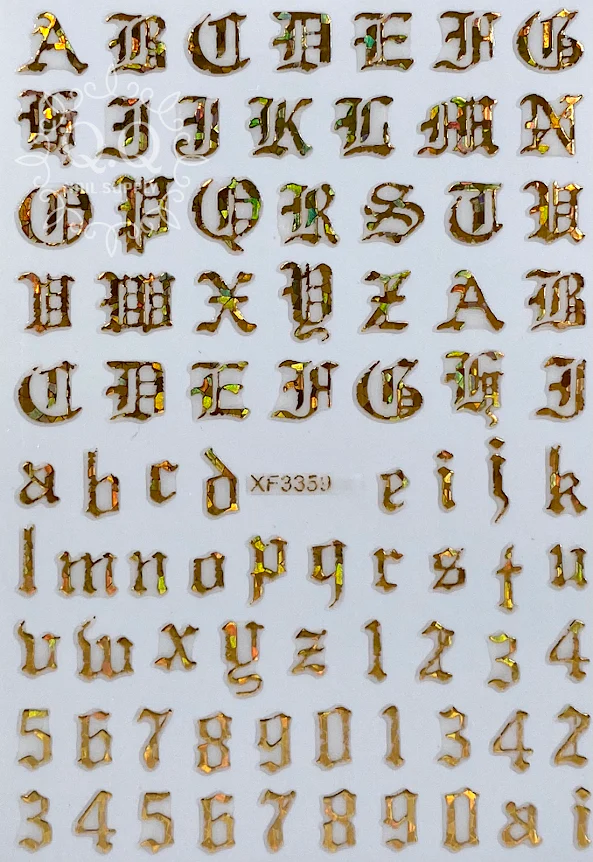 A B C D E F G
H I J K L M N
O P Q R S T U
V W X Y Z A B
C D E F G H I
a b c d XF3359 e i j k
l m n o p q r s t u
v w x y z 1 2 3 4
5 6 7 8 9 0 1 3 4 2
3 4 5 6 7 8 9 0 a i
Q.Q
NAIL SUPPLY